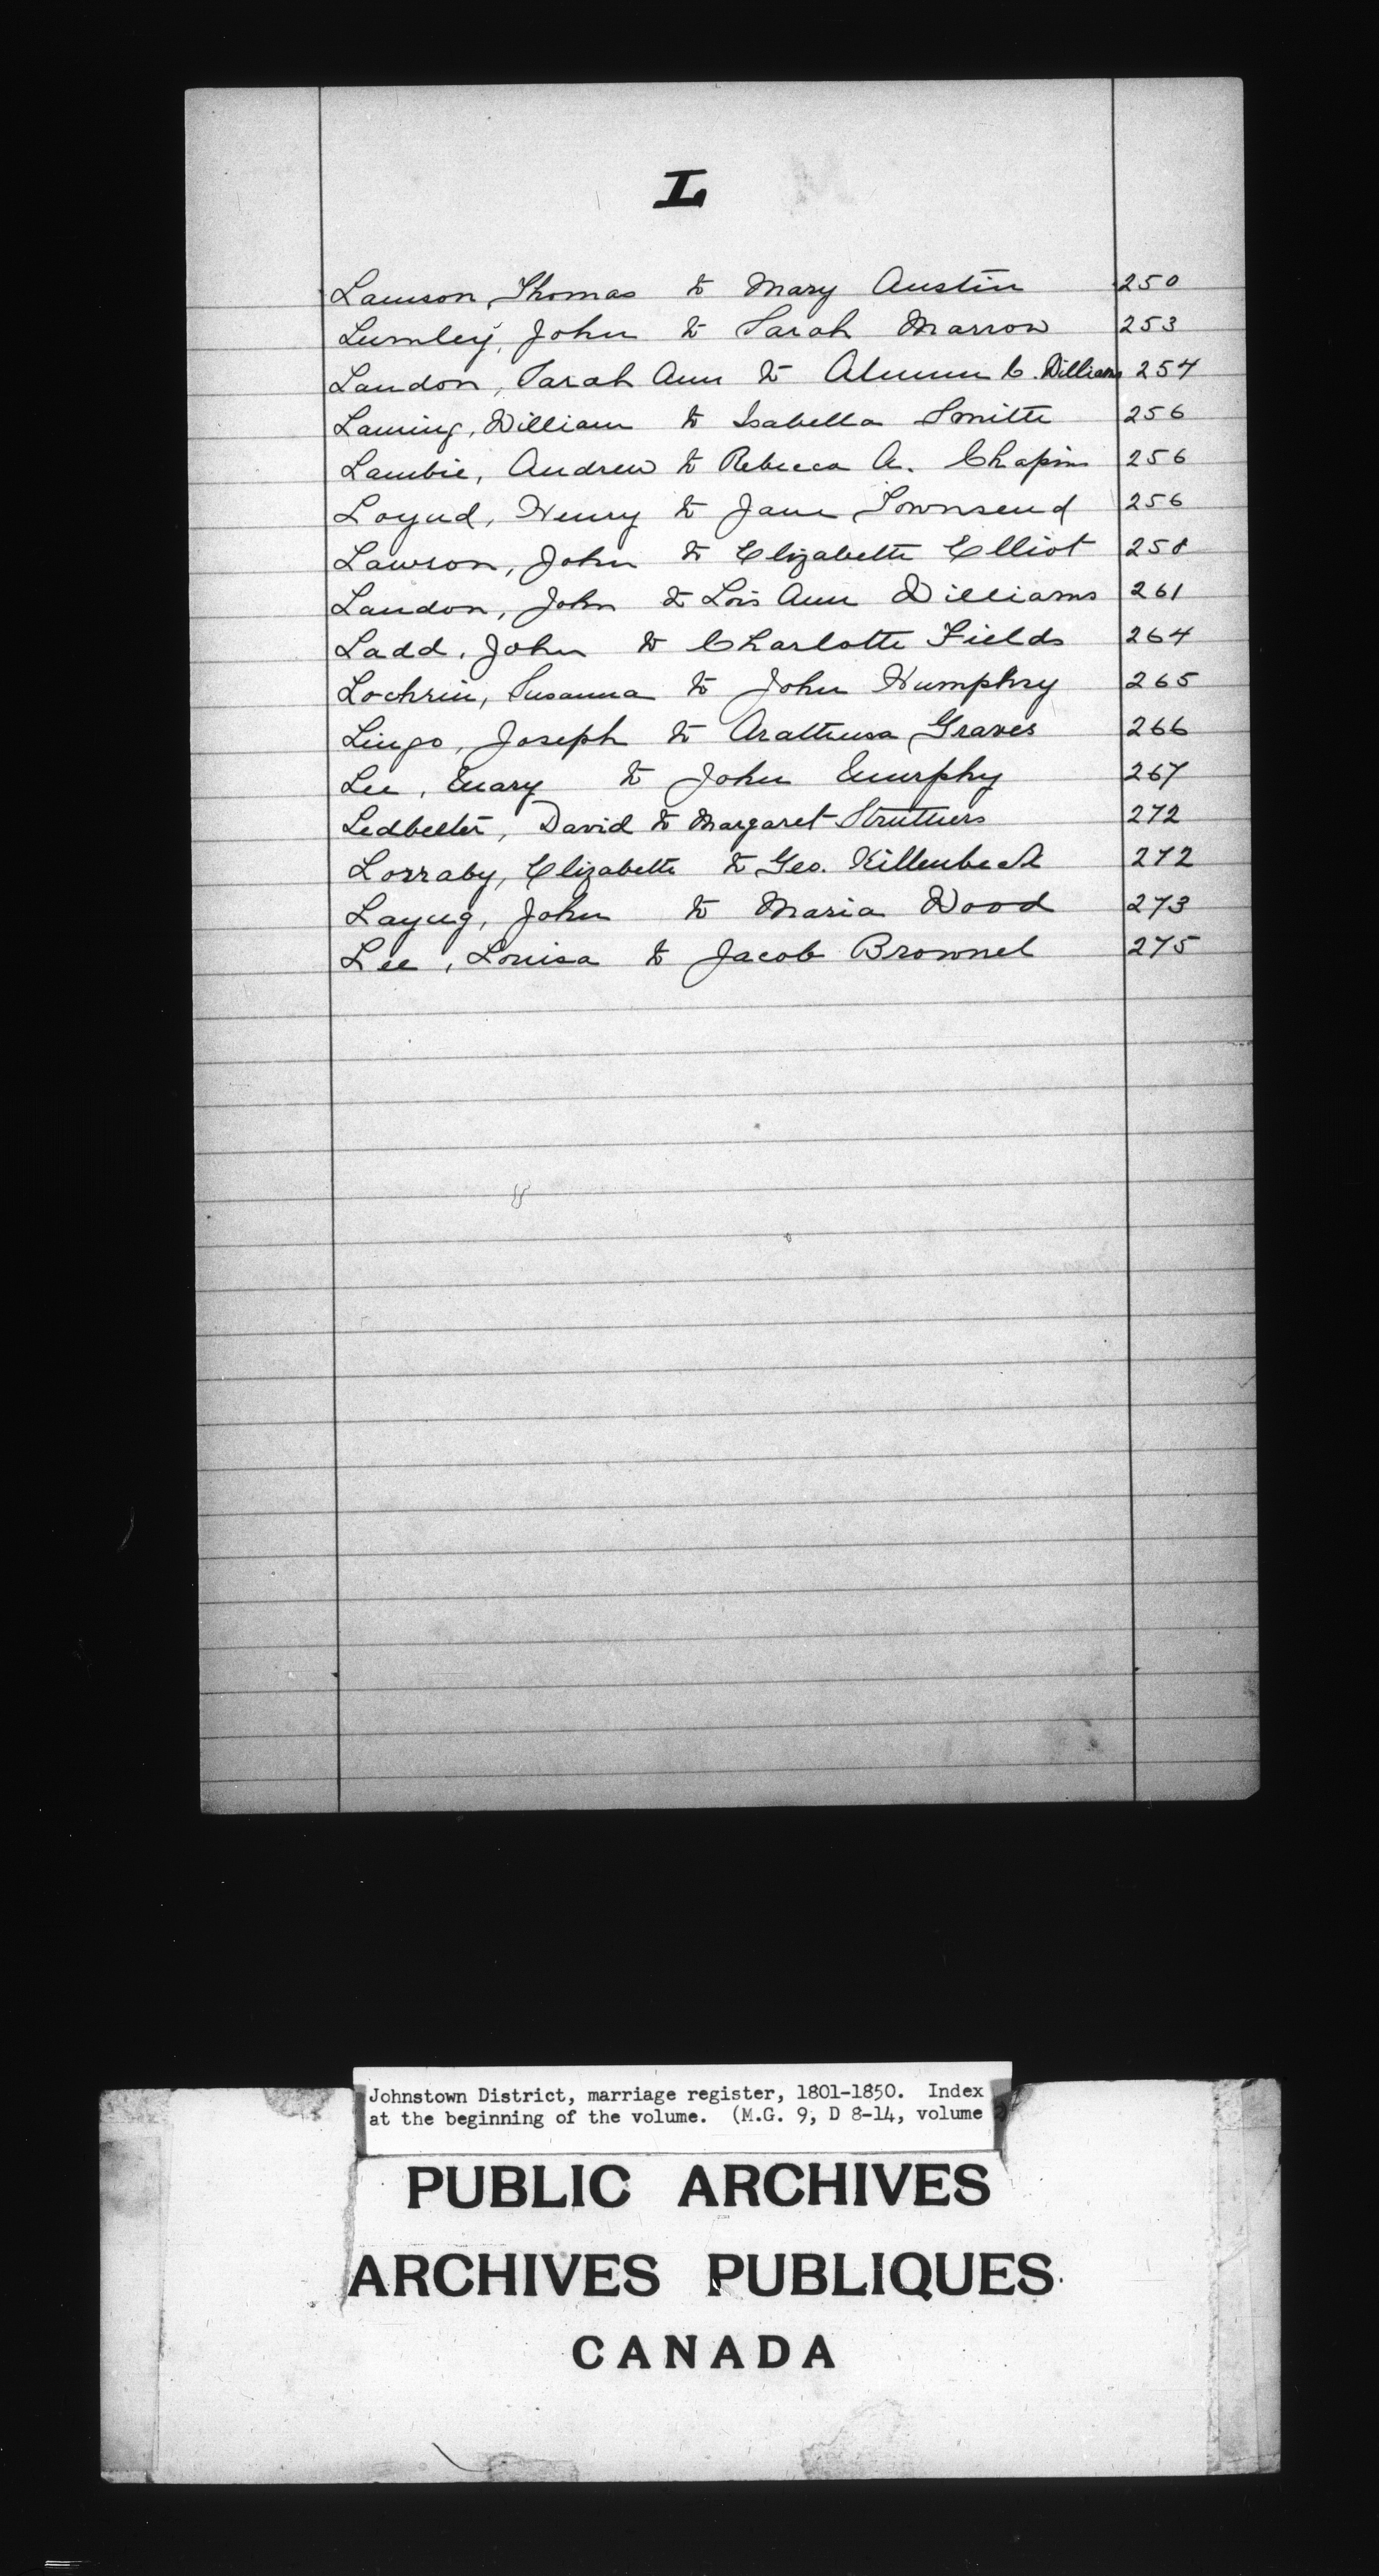 L
Lamson, Thomas to Mary Austin 250
Lumley, John to Sarah Marrow 253
Landon, Sarah Ann to C. Williams 254
Laming, William to Isabella Smith 256
Lambie, Andrew to Rebecca A. Chapin 256
Loyud, Henry to Jane Townsend 256
Lawson, John to Elizabeth Elliot 258
Landon, John to Lois Ann Williams 261
Ladd, John to Charlotte Fields 264
Lochrin, Susanna to John Humphry 265
Lingo, Joseph to Arathusa Graves 266
Lee, Mary to John Murphy 267
Ledbeter, David to Margaret Struthers 272
Lorraby, Elizabeth to Geo. Killenbeck 272
Layug, John to Maria Wood 273
Lee, Louisa to Jacob Brownel 275
Johnstown District, marriage register, 1801-1850. Index
at the beginning of the volume. (M.G. 9, D 8-14, volume
PUBLIC ARCHIVES
ARCHIVES PUBLIQUES
CANADA